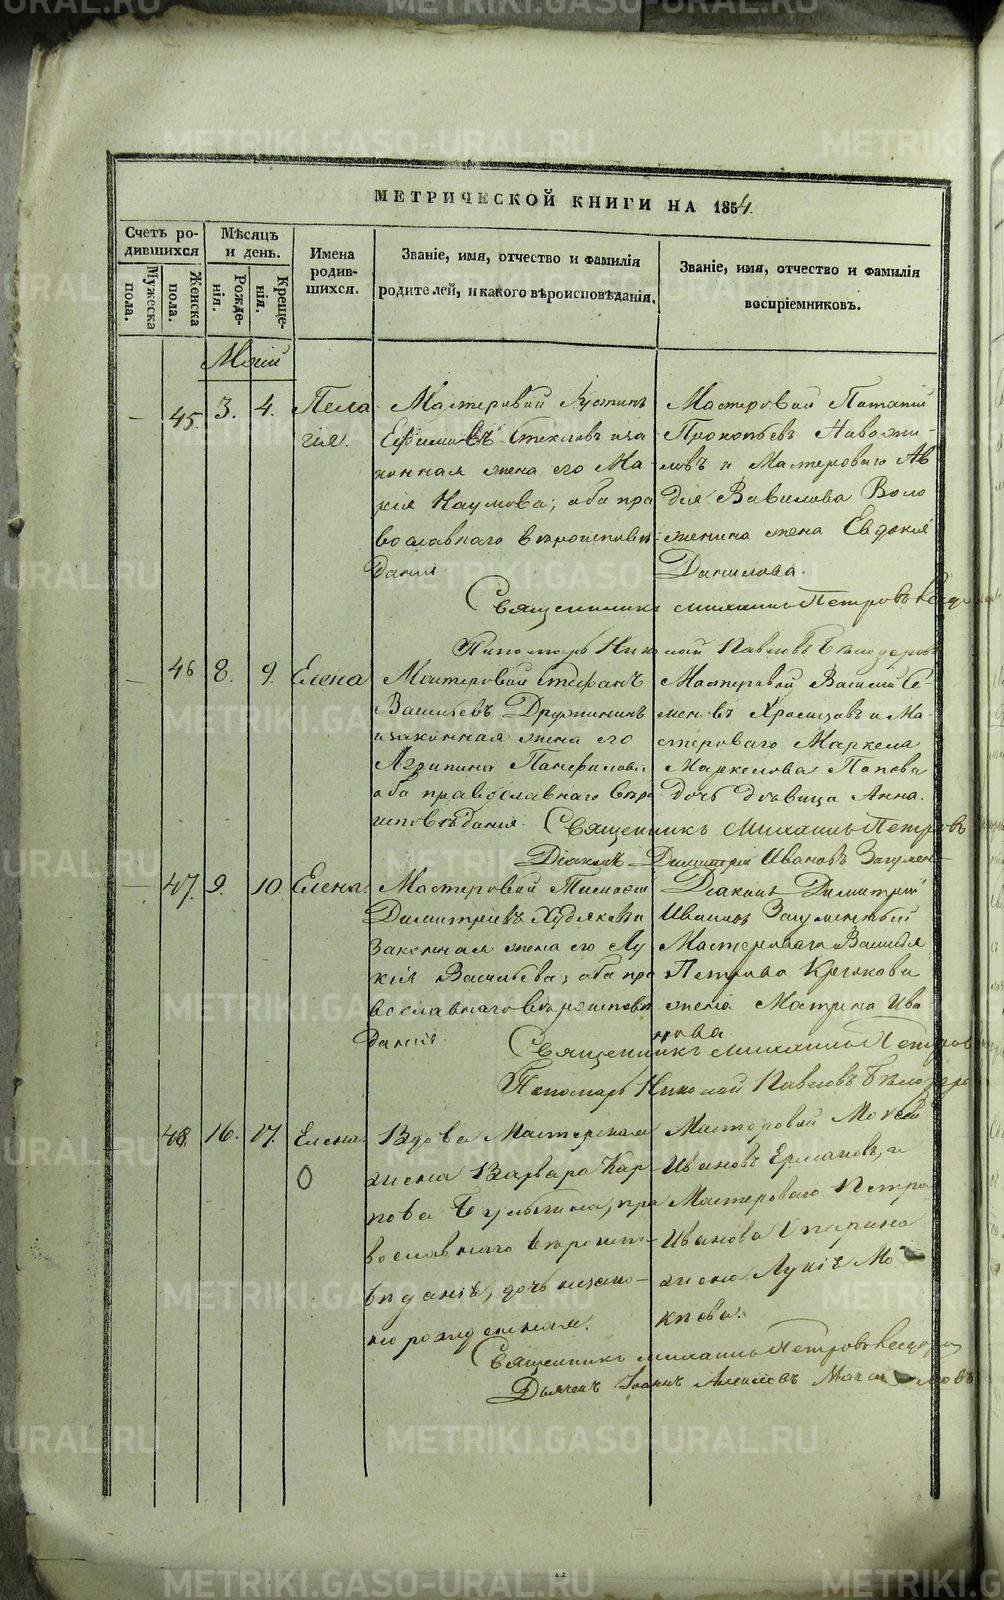 МЕТРИЧЕСКОЙ КНИГИ НА 1854.
Счетъ ро-
дившихся
Мужеска
пола.
Женска
пола.
Мѣсяцъ
и день.
Рожде-
нія.
Креще-
нія.
Имена
родив-
шихся.
Званіе, имя, отчество и фамилія
родителей, и какого вѣроисповѣданія.
Званіе, имя, отчество и фамилія
воспріемниковъ.
Маій
45. 3. 4. Пела
гія.
Мастеровый Іустинъ
Ефимовъ Стекловъ и за
конная жена его Ма-
рія Наумова; оба пра
вославнаго вѣроисповѣ-
данія
Мастеровый Потапій
Прокопьевъ
ловъ и Мастероваго Ав
дія Вавилова Воло
женина жена Евдокія
Данилова.
Священникъ Михаилъ Петровъ
Пономарь Николай Павловъ Бѣлозеровъ
46 8. 9. Елена
Мастеровый Стефанъ
Васильевъ Дружининъ
и законная жена его
Агрипина Панфилова
оба православнаго вѣро
исповѣданія.
Мастеровый Василій Се-
меновъ и Ма-
стероваго Маркела
Маркелова Попова
дочь дѣвица Анна.
Священникъ Михаилъ Петровъ
Діаконъ Димитрій Ивановъ Загумен-
47. 9. 10 Елена.
Мастеровый Тимофей
Димитріевъ Худяковъ и
законная жена его Лу
кія Васильева; оба пра
вославнаго вѣроисповѣ
данія.
Діаконъ Димитрій
Ивановъ Загуменный
Мастероваго Василья
Петрова Крюкова
жена Матрина Ива
нова
Священникъ Михаилъ Петровъ
Пономарь Николай Павловъ Бѣлозеро
48. 16. 17. Елена.
Вдова Мастерская
жена Варвара Кар-
пова Булыгина, пра
вославнаго вѣроиспо-
вѣданія, дочь незако-
но рожденная.
Мастеровый Мокей
Ивановъ Ермаковъ, и
Мастероваго Петра
Иванова Опарина
жена Лукія Мо
кѣева.
Священникъ Михаилъ Петровъ
Дьячекъ Іоаннъ Алексѣевъ
METRIKI.GASO-URAL.RU